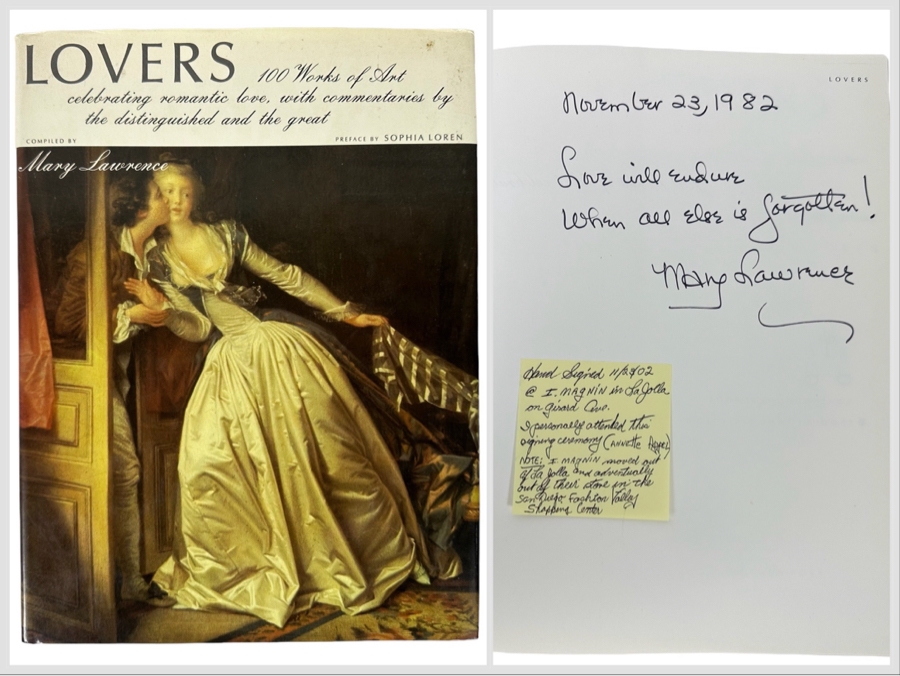 LOVERS 100 Works of Art
celebrating romantic love, with commentaries by
the distinguished and the great
COMPILED BY
PREFACE BY SOPHIA LOREN
Mary Lawrence
LOVERS
November 23, 1982
Love will endure
When all else is forgotten!
Mary Lawrence
Hand Signed
@ I. MAGNIN in La Jolla
on Girard Ave.
I personally attended this
signing ceremony (ANNETTE
NOTE: I MAGNIN moved out
of La Jolla and adventually
out of their store in the
San Diego Fashion Valley
Shopping Center